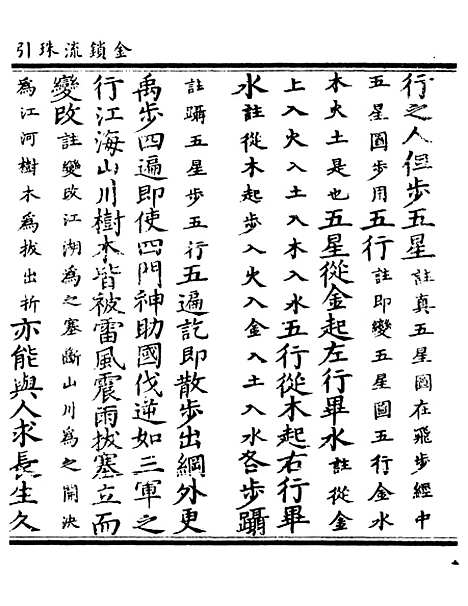 金鎖流珠引
行之人但步五星註真五星圖在飛步經中
五星圖步用五行註即變五星圖五行金水
木火土是也五星從金起左行畢水註從金
上入火入土入木入水五行從木起右行畢
水註從木起步入火入金入土入水各步躡
註躡五星步五行五遍訖即散步出綱外更
禹步四遍即使四門神助國伐逆如三軍之
行江海山川樹木皆被雷風震雨拔塞立而
變改註變改江湖為之塞斷山川為之開決
為江河樹木為拔出折亦能與人求長生久